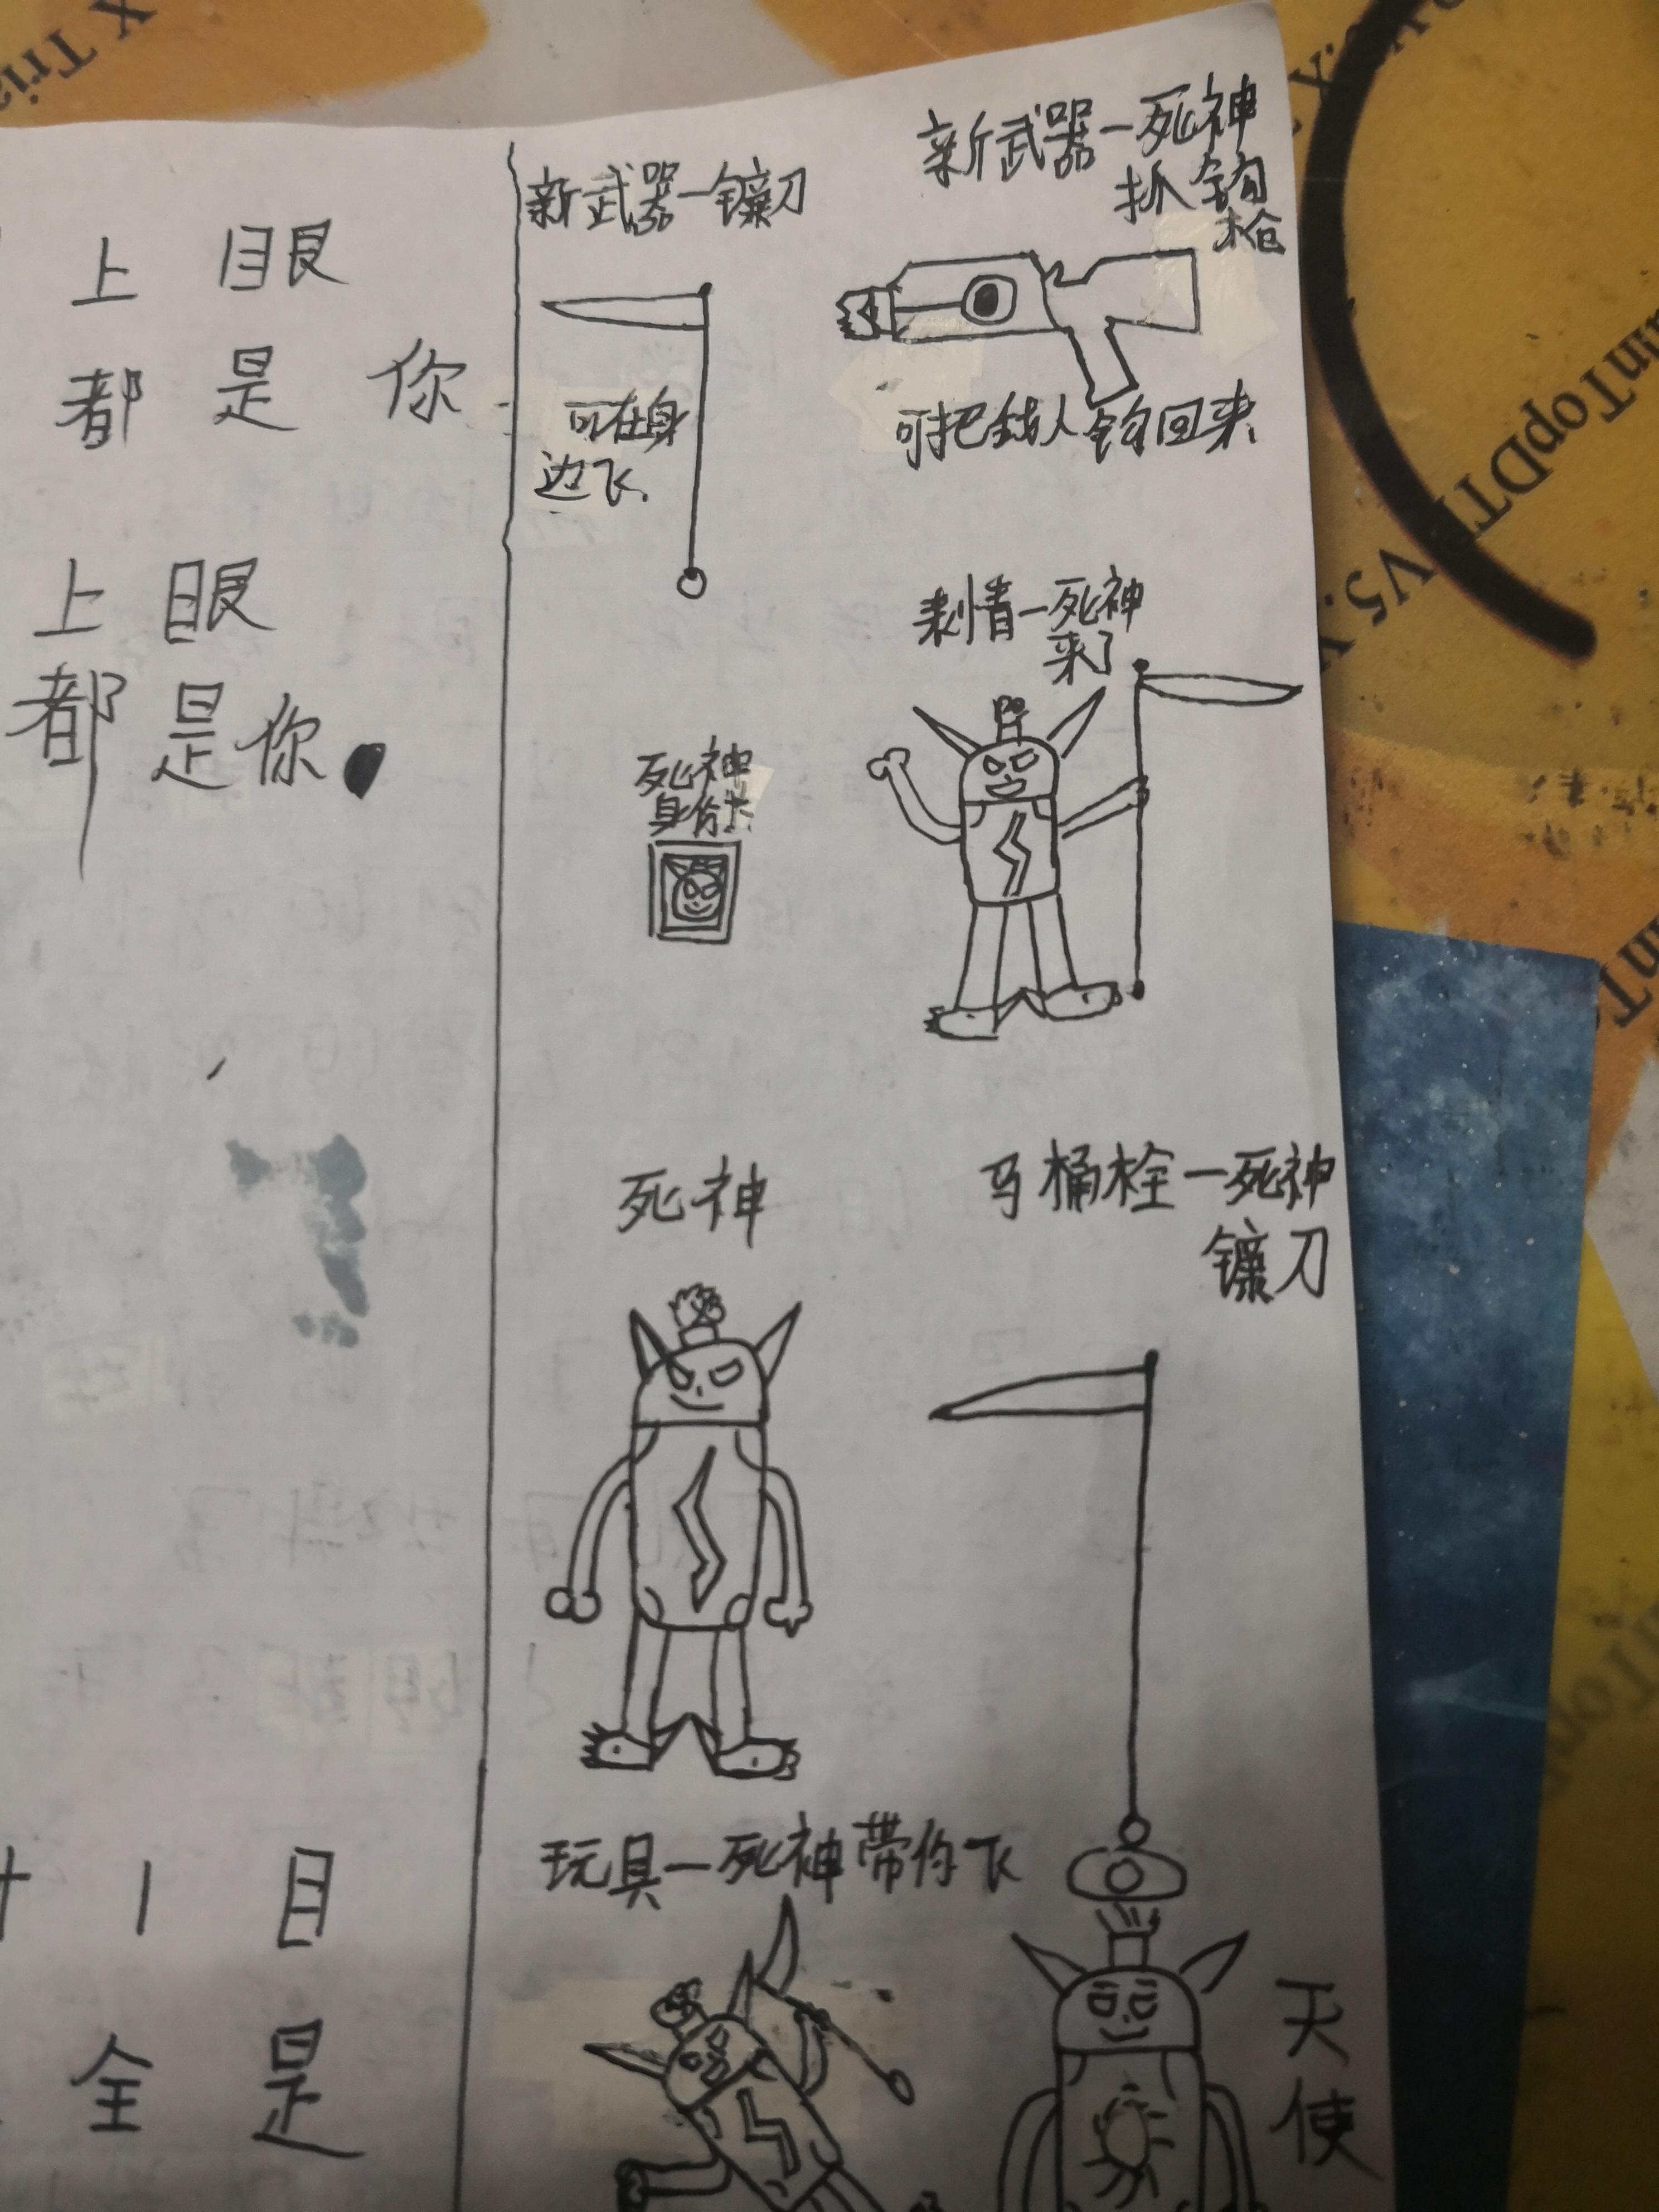 上 眼
都 是 你
上 眼
都 是 你
1 目
全 是
新武器一镰刀
可在身
边飞.
新武器一死神
抓钩
枪
可把敌人钩回来
刺情一死神
来了
死神
身份卡
死神
马桶栓一死神
镰刀
玩具一死神带你飞
天
使
X Tria
unTopDTI
V5.